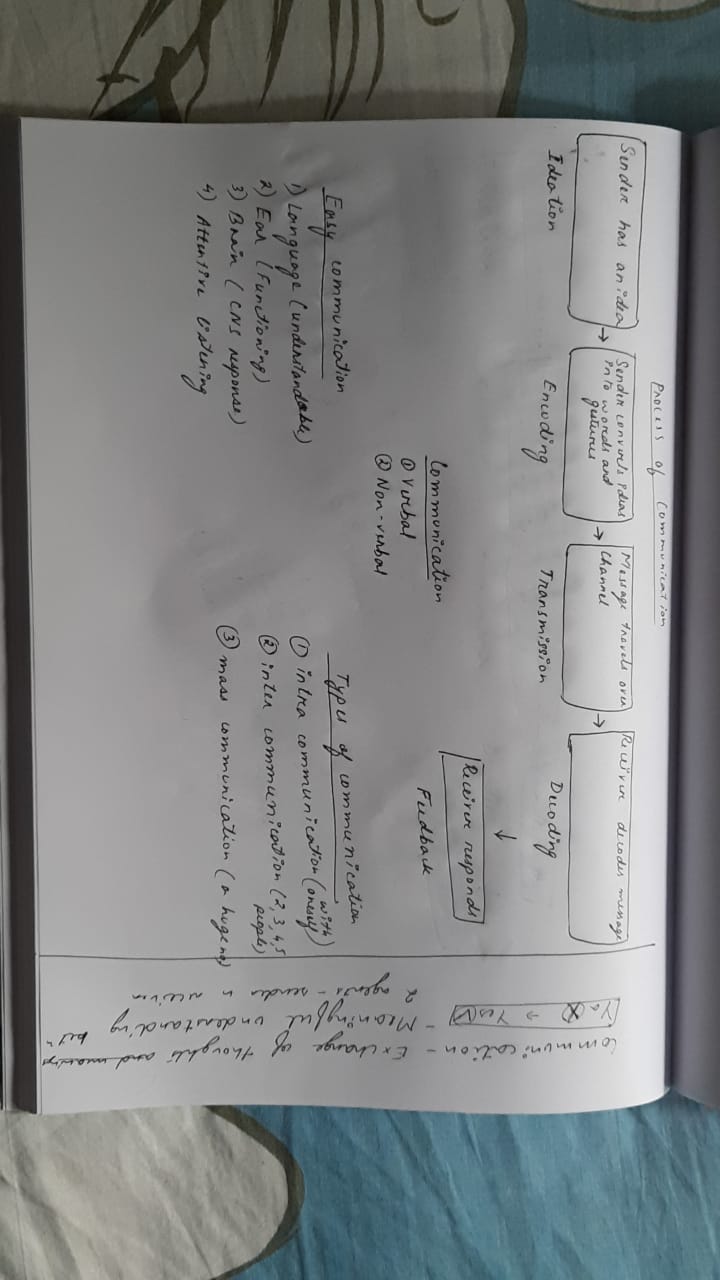 Process of Communication
Sender has an idea
→
Sender converts ideas
into words and
gestures
→
Message travels over
channel
→
Receiver decodes message
Ideation
Encoding
Transmission
Decoding
↓
Receiver responds
Feedback
Communication
① Verbal
② Non-verbal
Easy communication
1) Language (understandable)
2) Ear (Functioning)
3) Brain (CNS response)
4) Attentive listening
Types of communication
① intra communication (with
oneself)
② inter communication (2,3,4,5
people)
③ mass communication (a huge no)
Communication - Exchange of thoughts and words
betn
→ Yes
- Meaningful understanding
2 agents - sender n receiver